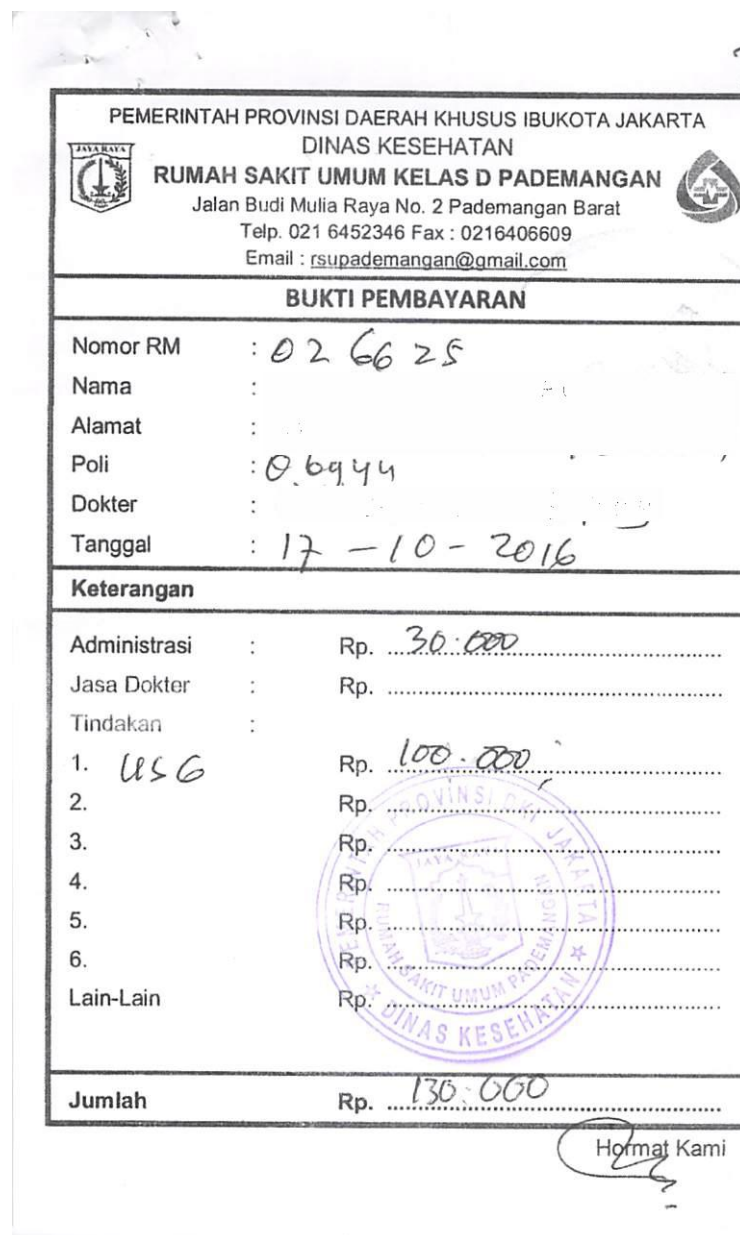 PEMERINTAH PROVINSI DAERAH KHUSUS IBUKOTA JAKARTA
DINAS KESEHATAN
JAYA RAYA
RUMAH SAKIT UMUM KELAS D PADEMANGAN
Jalan Budi Mulia Raya No. 2 Pademangan Barat
Telp. 021 6452346 Fax : 0216406609
Email : rsupademangan@gmail.com
BUKTI PEMBAYARAN
Nomor RM : 026625
Nama :
Alamat :
Poli :
Dokter :
Tanggal : 17 - 10 - 2016
Keterangan
Administrasi : Rp. 30.000
Jasa Dokter : Rp.
Tindakan :
1. USG Rp. 100.000,
2. Rp.
3. Rp.
4. Rp.
5. Rp.
6. Rp.
Lain-Lain Rp.
PEMERINTAH PROVINSI DKI JAKARTA
JAYA RAYA
RUMAH SAKIT UMUM PADEMANGAN
DINAS KESEHATAN
Jumlah Rp. 130.000
Hormat Kami